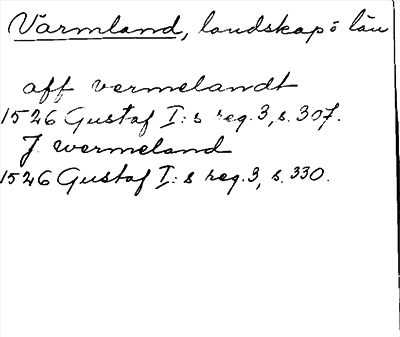 Värmland, landskap o län
aff vermelandt
1526 Gustaf I:s reg. 3, s. 307.
J wermeland
1526 Gustaf I:s reg. 3, s. 330.